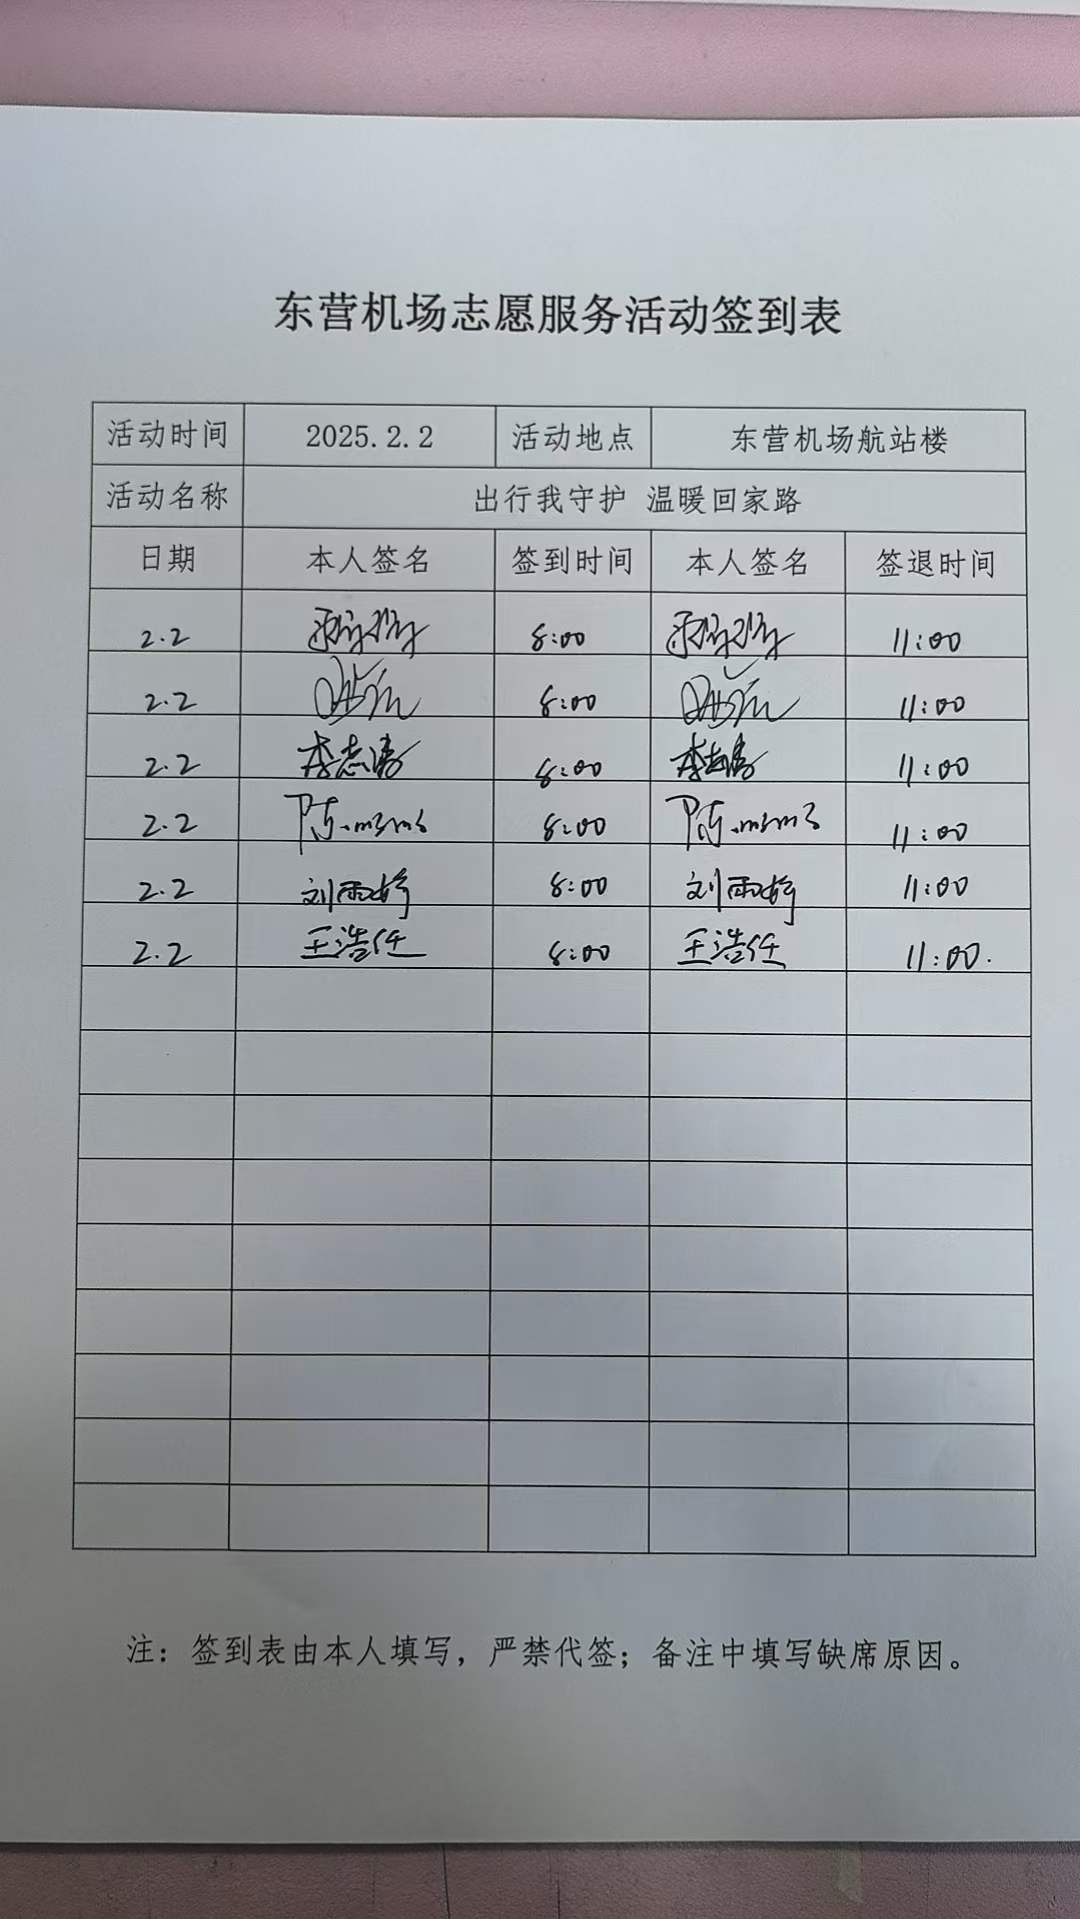 东营机场志愿服务活动签到表
活动时间 2025.2.2 活动地点 东营机场航站楼
活动名称 出行我守护 温暖回家路
日期 本人签名 签到时间 本人签名 签退时间
2.2 8:00 11:00
2.2 8:00 11:00
2.2 李志涛 8:00 李志涛 11:00
2.2 陈 8:00 陈 11:00
2.2 刘雨婷 8:00 刘雨婷 11:00
2.2 王浩任 8:00 王浩任 11:00.
注：签到表由本人填写，严禁代签；备注中填写缺席原因。